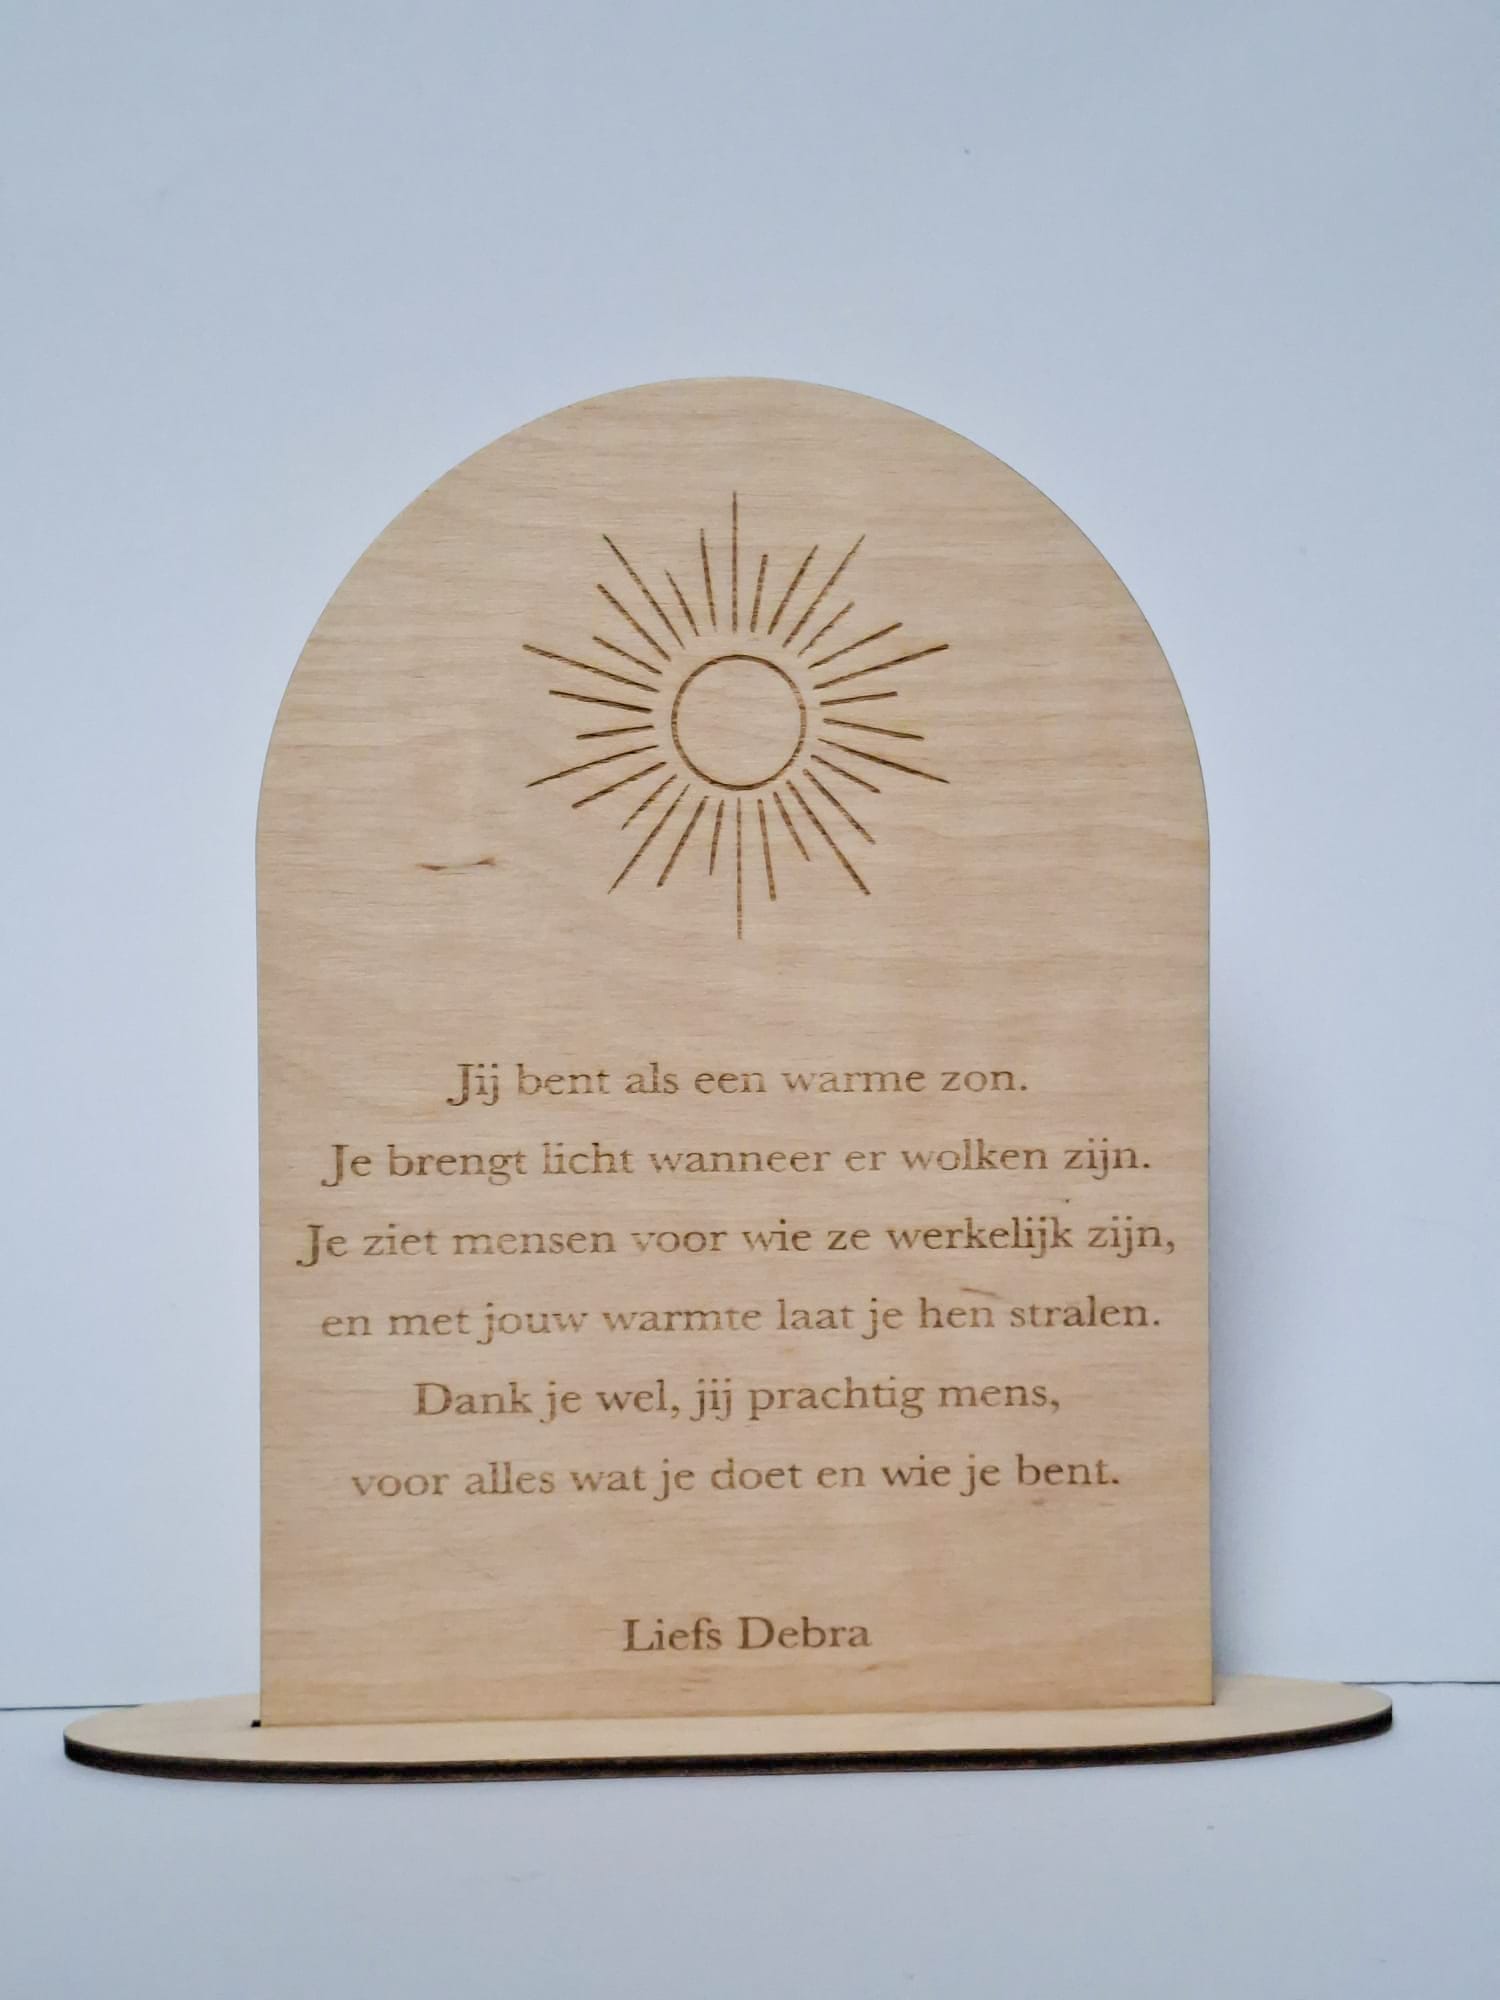 Jij bent als een warme zon.
Je brengt licht wanneer er wolken zijn.
Je ziet mensen voor wie ze werkelijk zijn,
en met jouw warmte laat je hen stralen.
Dank je wel, jij prachtig mens,
voor alles wat je doet en wie je bent.
Liefs Debra